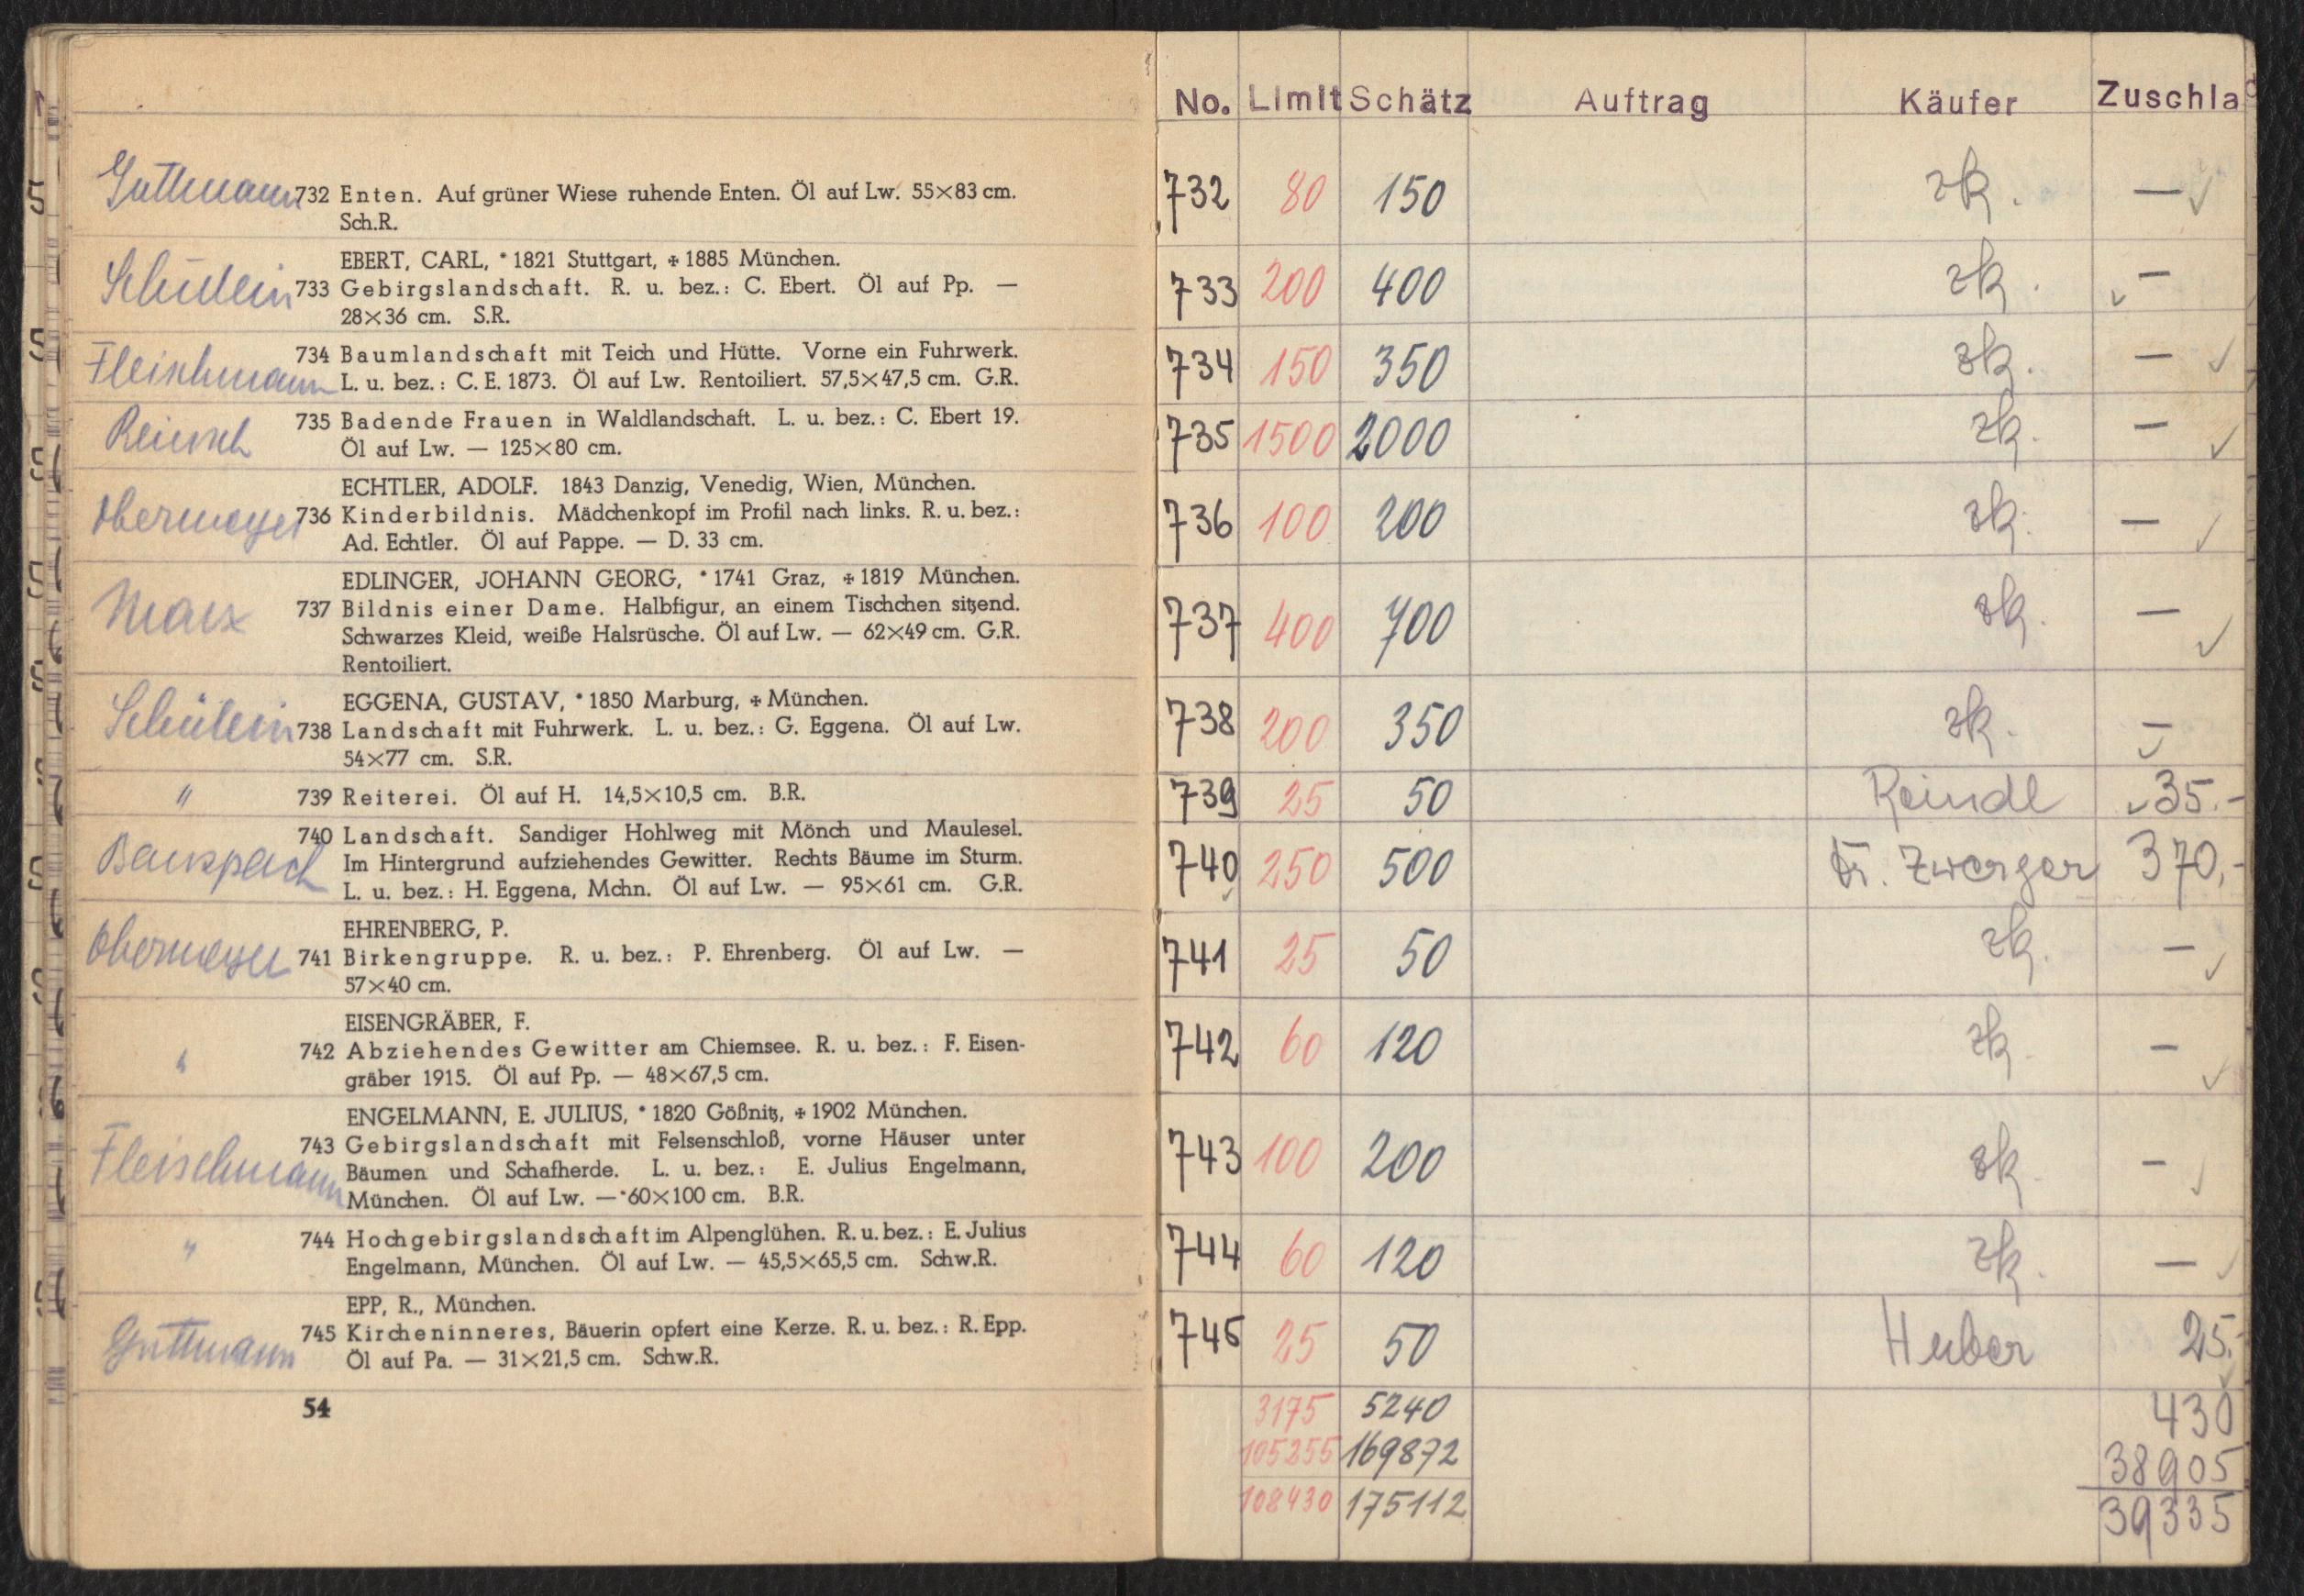 Guttmann 732 Enten. Auf grüner Wiese ruhende Enten. Öl auf Lw. 55×83 cm.
Sch.R.
EBERT, CARL, * 1821 Stuttgart, ✠ 1885 München.
Schülein 733 Gebirgslandschaft. R. u. bez.: C. Ebert. Öl auf Pp. —
28×36 cm. S.R.
734 Baumlandschaft mit Teich und Hütte. Vorne ein Fuhrwerk.
Fleischmann L. u. bez.: C. E. 1873. Öl auf Lw. Rentoiliert. 57,5×47,5 cm. G.R.
735 Badende Frauen in Waldlandschaft. L. u. bez.: C. Ebert 19.
Öl auf Lw. — 125×80 cm.
ECHTLER, ADOLF. 1843 Danzig, Venedig, Wien, München.
Obermeyer 736 Kinderbildnis. Mädchenkopf im Profil nach links. R. u. bez.:
Ad. Echtler. Öl auf Pappe. — D. 33 cm.
EDLINGER, JOHANN GEORG, * 1741 Graz, ✠ 1819 München.
Marx 737 Bildnis einer Dame. Halbfigur, an einem Tischchen sitzend.
Schwarzes Kleid, weiße Halsrüsche. Öl auf Lw. — 62×49 cm. G.R.
Rentoiliert.
EGGENA, GUSTAV, * 1850 Marburg, ✠ München.
Schülein 738 Landschaft mit Fuhrwerk. L. u. bez.: G. Eggena. Öl auf Lw.
54×77 cm. S.R.
" 739 Reiterei. Öl auf H. 14,5×10,5 cm. B.R.
740 Landschaft. Sandiger Hohlweg mit Mönch und Maulesel.
Im Hintergrund aufziehendes Gewitter. Rechts Bäume im Sturm.
L. u. bez.: H. Eggena, Mchn. Öl auf Lw. — 95×61 cm. G.R.
EHRENBERG, P.
Obermeyer 741 Birkengruppe. R. u. bez.: P. Ehrenberg. Öl auf Lw. —
57×40 cm.
EISENGRÄBER, F.
" 742 Abziehendes Gewitter am Chiemsee. R. u. bez.: F. Eisen-
gräber 1915. Öl auf Pp. — 48×67,5 cm.
ENGELMANN, E. JULIUS, * 1820 Gößnitz, ✠ 1902 München.
743 Gebirgslandschaft mit Felsenschloß, vorne Häuser unter
Fleischmann Bäumen und Schafherde. L. u. bez.: E. Julius Engelmann,
München. Öl auf Lw. — 60×100 cm. B.R.
" 744 Hochgebirgslandschaft im Alpenglühen. R. u. bez.: E. Julius
Engelmann, München. Öl auf Lw. — 45,5×65,5 cm. Schw.R.
EPP, R., München.
Guttmann 745 Kircheninneres, Bäuerin opfert eine Kerze. R. u. bez.: R. Epp.
Öl auf Pa. — 31×21,5 cm. Schw.R.
54
No. Limit Schätz Auftrag Käufer Zuschlag
732 80 150 zk. —
733 200 400 zk. —
734 150 350 zk. —
735 1500 2000 zk. —
736 100 200 zk. —
737 400 700 zk. —
738 200 350 zk. —
739 25 50 Reindl 35.-
740 250 500 Dr. Zwerger 370,-
741 25 50 zk. —
742 60 120 zk. —
743 100 200 zk. —
744 60 120 zk. —
745 25 50 Huber 25.-
3175 5240 430
105255 169872 38905
108430 175112 39335